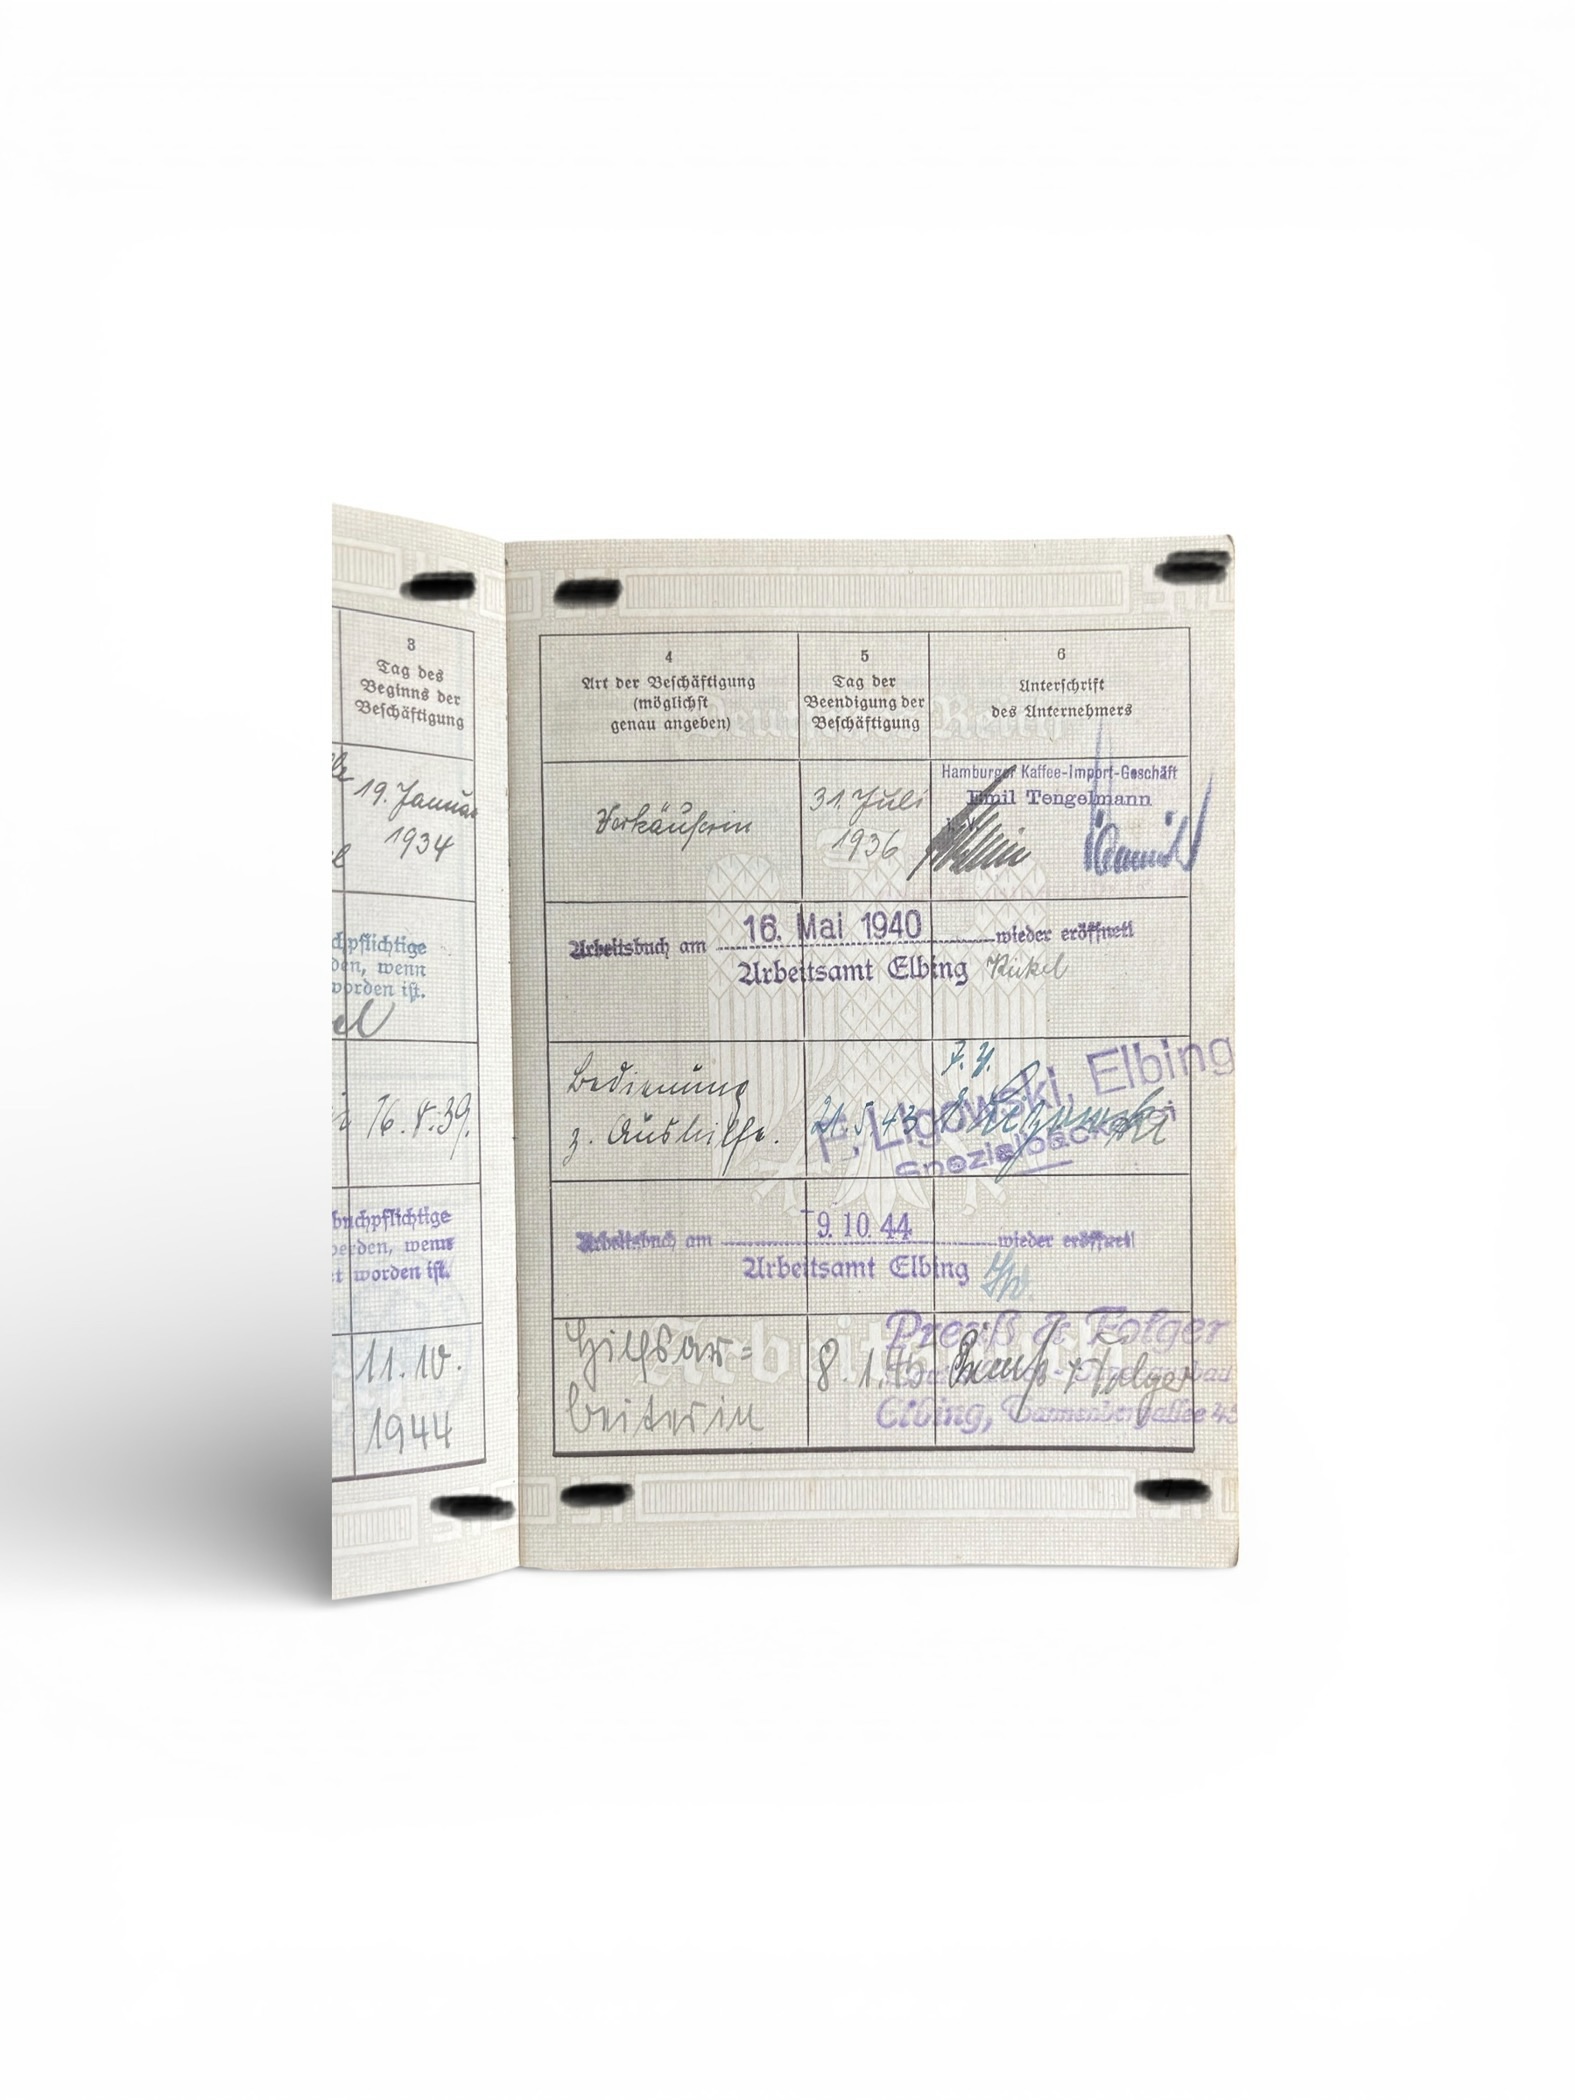 3
Tag des
Beginns der
Beschäftigung
19. Januar
1934
pflichtige
den, wenn
worden ist.
buchpflichtige
werden, wenn
worden ist.
11.10.
1944
4
Art der Beschäftigung
(möglichst
genau angeben)
5
Tag der
Beendigung der
Beschäftigung
6
Unterschrift
des Unternehmers
Deutsches Reich
Verkäuferin
31. Juli
1936
Hamburger Kaffee-Import-Geschäft
Emil Tengelmann
Arbeitsbuch am 16. Mai 1940 wieder eröffnet!
Arbeitsamt Elbing
Bedienung
z. Aushilfe.
21.5.43
F. Ligowski, Elbing
Spezialbäckerei
Arbeitsbuch am 9.10.44 wieder eröffnet!
Arbeitsamt Elbing
Hilfsar=
beiterin
8.1.45
Preuß & Folger
Elbing, Tannenbergallee
Preuß & Folger
Arbeitsbuch